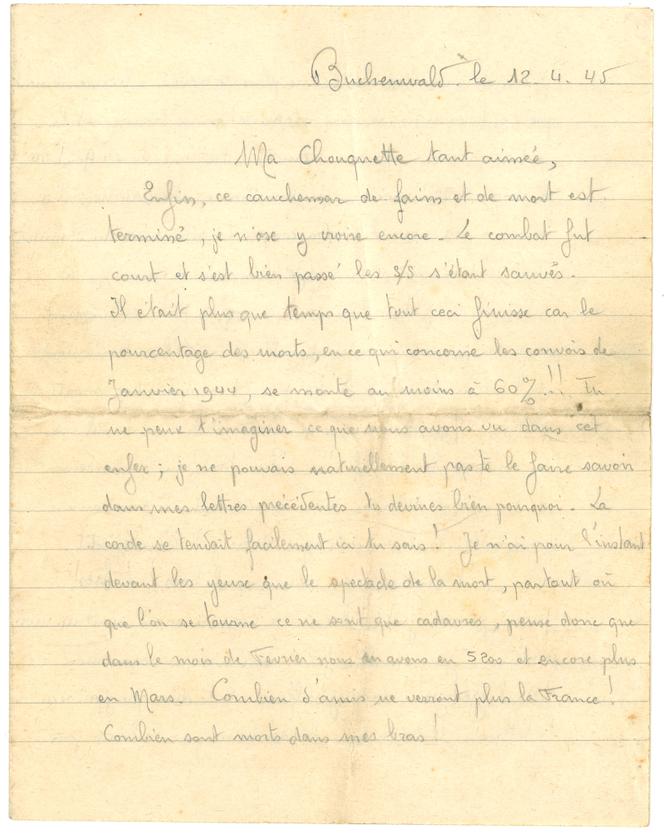 Buchenwald le 12.4.45
Ma Chouquette tant aimée,
Enfin, ce cauchemar de faim et de mort est
terminé, je n'ose y croire encore. Le combat fut
court et s'est bien passé les S/S s'étant sauvés.
Il était plus que temps que tout ceci finisse car le
pourcentage des morts, en ce qui concerne les convois de
Janvier 1944, se monte au moins à 60% !!! Tu
ne peux t'imaginer ce que nous avons vu dans cet
enfer ; je ne pouvais naturellement pas te le faire savoir
dans mes lettres précédentes tu devines bien pourquoi. La
corde se tendait facilement ici tu sais ! Je n'ai pour l'instant
devant les yeux que le spectacle de la mort, partout où
que l'on se tourne ce ne sont que cadavres, pense donc que
dans le mois de Février nous en avons eu 5200 et encore plus
en Mars. Combien d'amis ne verront plus la France !
Combien sont morts dans mes bras !